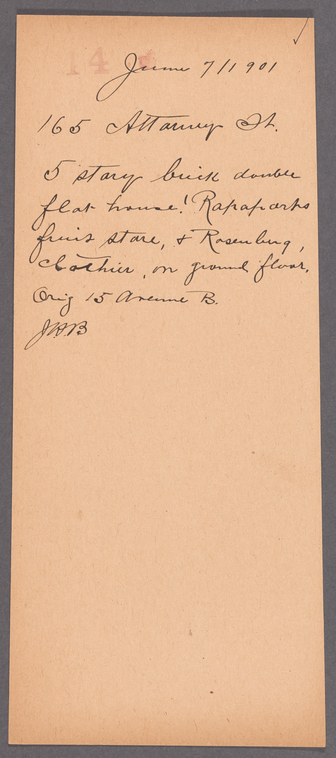 14
June 7/1901
165 Attorney St.
5 story brick double
flat house! Rapaports
fruit store, & Rosenburg,
clothier, on ground floor.
Orig 15 Avenue B.
JHB